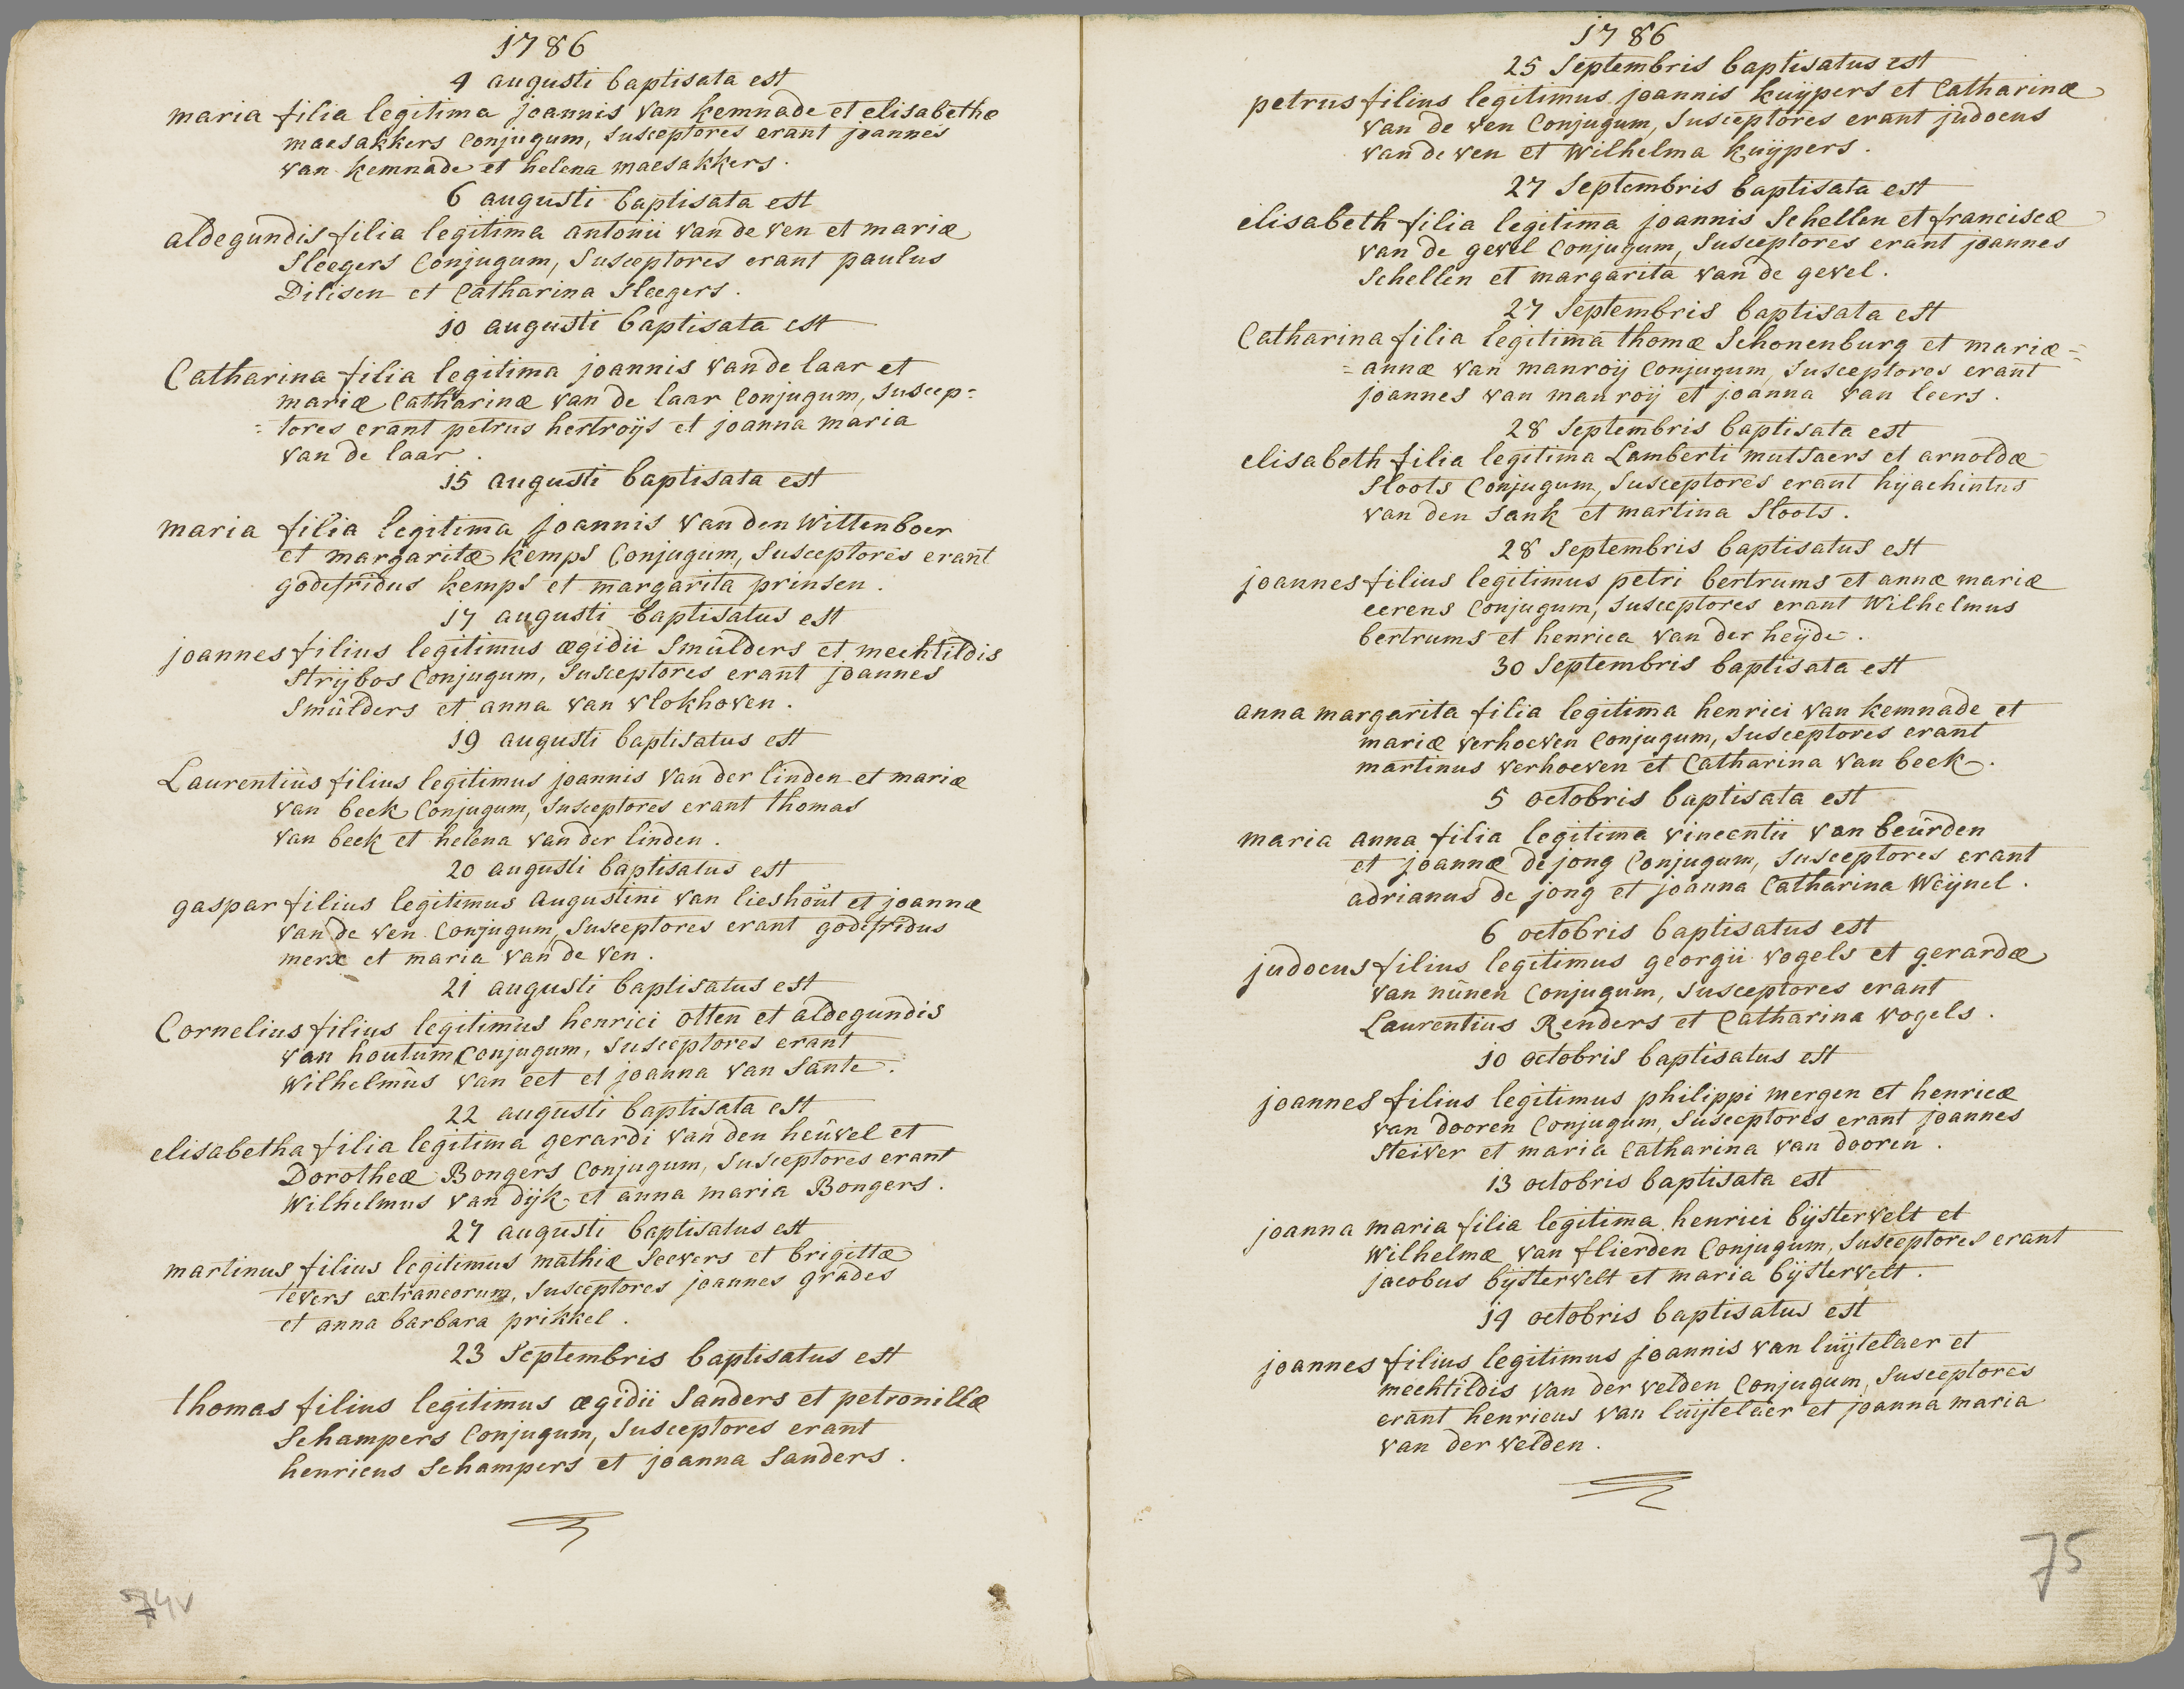 1786
4 augusti baptisata est
maria filia legitima joannis van kemnade et elisabethæ
maesakkers Conjugum, Susceptores erant joannes
van kemnade et helena maesakkers.
6 augusti baptisata est
aldegundis filia legitima antonii van de ven et mariæ
Sleegers Conjugum, Susceptores erant paulus
Dilisen et Catharina Sleegers.
10 augusti baptisata est
Catharina filia legitima joannis van de laar et
mariæ Catharinæ van de laar Conjugum, Suscep=
=tores erant petrus hertroijs et joanna maria
van de laar.
15 augusti baptisata est
maria filia legitima joannis van den Wittenboer
et margaritæ kemps Conjugum, Susceptores erant
godefridus kemps et margarita prinsen.
17 augusti baptisatus est
joannes filius legitimus ægidii Smûlders et mechtildis
Strijbos Conjugum, Susceptores erant joannes
Smûlders et anna van vlokhoven.
19 augusti baptisatus est
Laurentiûs filius legitimus joannis van der linden et mariæ
van beek Conjugum, Susceptores erant thomas
van beek et helena van der linden.
20 augusti baptisatus est
gaspar filius legitimus augustini van lieshoût et joannæ
van de ven Conjugum, Susceptores erant godefridus
merx et maria van de ven.
21 augusti baptisatus est
Cornelius filius legitimus henrici otten et aldegundis
van houtum Conjugum, Susceptores erant
Wilhelmûs van eet et joanna van Sante.
22 augusti baptisata est
elisabetha filia legitima gerardi van den heûvel et
Dorotheæ Bongers Conjugum, Susceptores erant
Wilhelmus van dijk et anna maria Bongers.
27 augusti baptisatus est
martinus filius legitimus mathiæ Seevers et brigittæ
evers extraneorum, Susceptores joannes grades
et anna barbara prikkel.
23 Septembris baptisatus est
thomas filius legitimus ægidii Sanders et petronillæ
Schampers Conjugum, Susceptores erant
henricus Schampers et joanna Sanders.
74v
1786
25 Septembris baptisatus est
petrus filius legitimus joannis kuijpers et Catharinæ
van de ven Conjugum, Susceptores erant judocus
van de ven et Wilhelma kuijpers.
27 Septembris baptisata est
elisabeth filia legitima joannis Schellen et franciscæ
van de gevel Conjugum, Susceptores erant joannes
Schellen et margarita van de gevel.
27 Septembris baptisata est
Catharina filia legitima thomæ Schonenburg et mariæ=
=annæ van manroij Conjugum, Susceptores erant
joannes van manroij et joanna van leers.
28 Septembris baptisata est
elisabeth filia legitima Lamberti mutsaers et arnoldæ
Sloots Conjugum, Susceptores erant hijachintus
van den Sank et martina Sloots.
28 Septembris baptisatus est
joannes filius legitimus petri bertrums et annæ mariæ
eerens Conjugum, Susceptores erant Wilhelmus
bertrums et henrica van der heijde.
30 Septembris baptisata est
anna margarita filia legitima henrici van kemnade et
mariæ verhoeven Conjugum, Susceptores erant
martinus verhoeven et Catharina van beek.
5 octobris baptisata est
maria anna filia legitima vincentii van beûrden
et joannæ de jong Conjugum, Susceptores erant
adrianus de jong et joanna Catharina Weijnel.
6 octobris baptisatus est
judocus filius legitimus georgii vogels et gerardæ
van nûnen Conjugum, Susceptores erant
Laurentius Renders et Catharina vogels.
10 octobris baptisatus est
joannes filius legitimus philippi mergen et henricæ
van dooren Conjugum, Susceptores erant joannes
Steiver et maria Catharina van dooren.
13 octobris baptisata est
joanna maria filia legitima henrici bijstervelt et
Wilhelmæ van flierden Conjugum, Susceptores erant
jacobus bijstervelt et maria bijstervelt.
14 octobris baptisatus est
joannes filius legitimus joannis van luijtelaer et
mechtildis van der velden Conjugum, Susceptores
erant henricus van luijtelaer et joanna maria
van der velden.
75